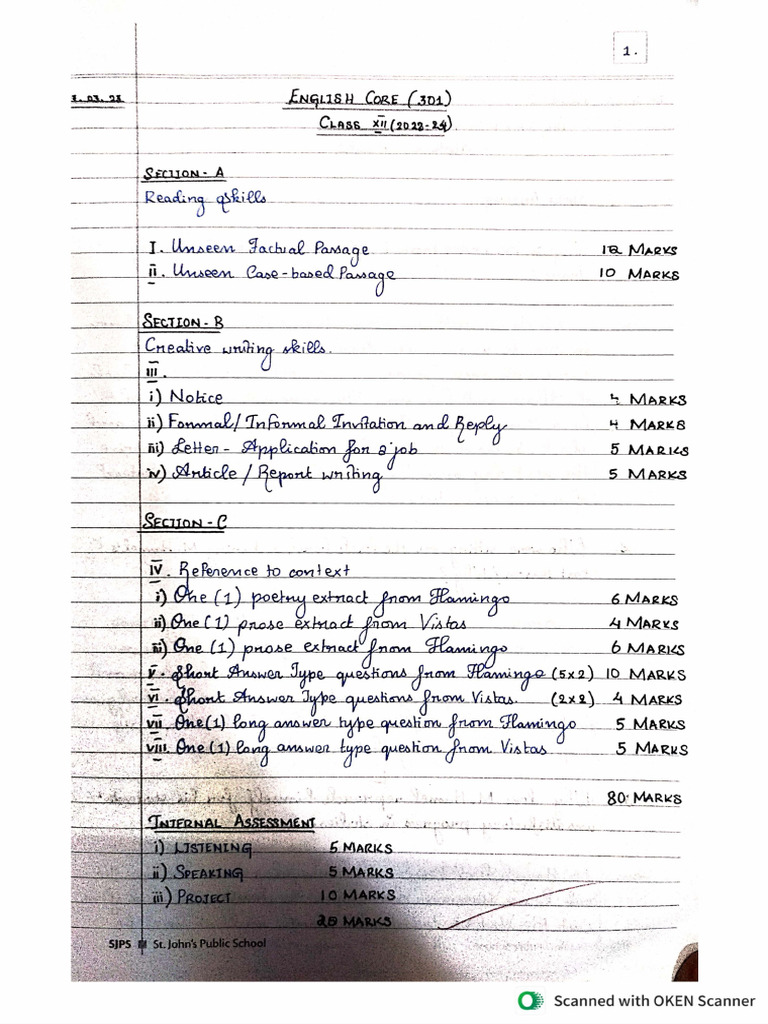 1.
ENGLISH CORE (301)
CLASS XII (2023-24)
SECTION - A
Reading skills
I. Unseen Factual Passage 12 MARKS
II. Unseen Case-based Passage 10 MARKS
SECTION - B
Creative writing skills.
III.
i) Notice 4 MARKS
ii) Formal/Informal Invitation and Reply 4 MARKS
iii) Letter - Application for a job 5 MARKS
iv) Article / Report writing 5 MARKS
SECTION - C
IV. Reference to context
i) One (1) poetry extract from Flamingo 6 MARKS
ii) One (1) prose extract from Vistas 4 MARKS
iii) One (1) prose extract from Flamingo 6 MARKS
V. Short Answer Type questions from Flamingo (5x2) 10 MARKS
VI. Short Answer Type questions from Vistas. (2x2) 4 MARKS
VII. One (1) long answer type question from Flamingo 5 MARKS
VIII. One (1) long answer type question from Vistas 5 MARKS
80 MARKS
INTERNAL ASSESSMENT
i) LISTENING 5 MARKS
ii) SPEAKING 5 MARKS
iii) PROJECT 10 MARKS
MARKS
SJPS St. John's Public School
Scanned with OKEN Scanner